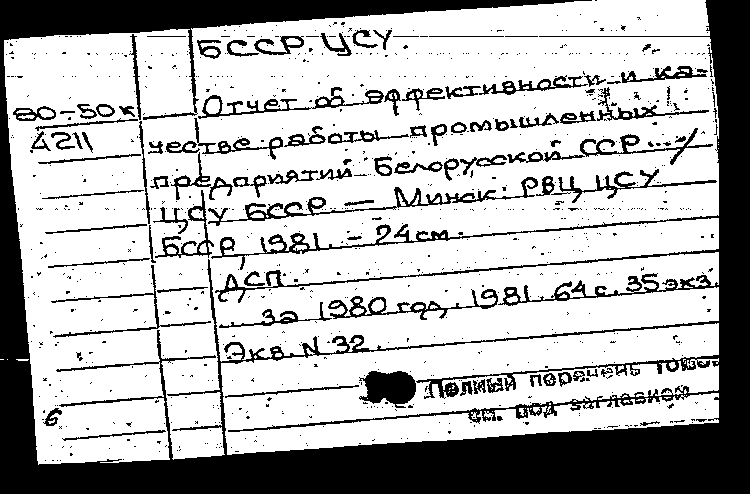 БССР. ЦСУ.
80-50к
4211
Отчет об эффективности и ка-
честве работы промышленных
предприятий Белорусской ССР.../
ЦСУ БССР. — Минск: РВЦ ЦСУ
БССР, 1981. - 24см.
ДСП.
за 1980 год. 1981. 64 с. 35 экз.
Экз. N 32.
Полный перечень томов
см. под заглавием
6